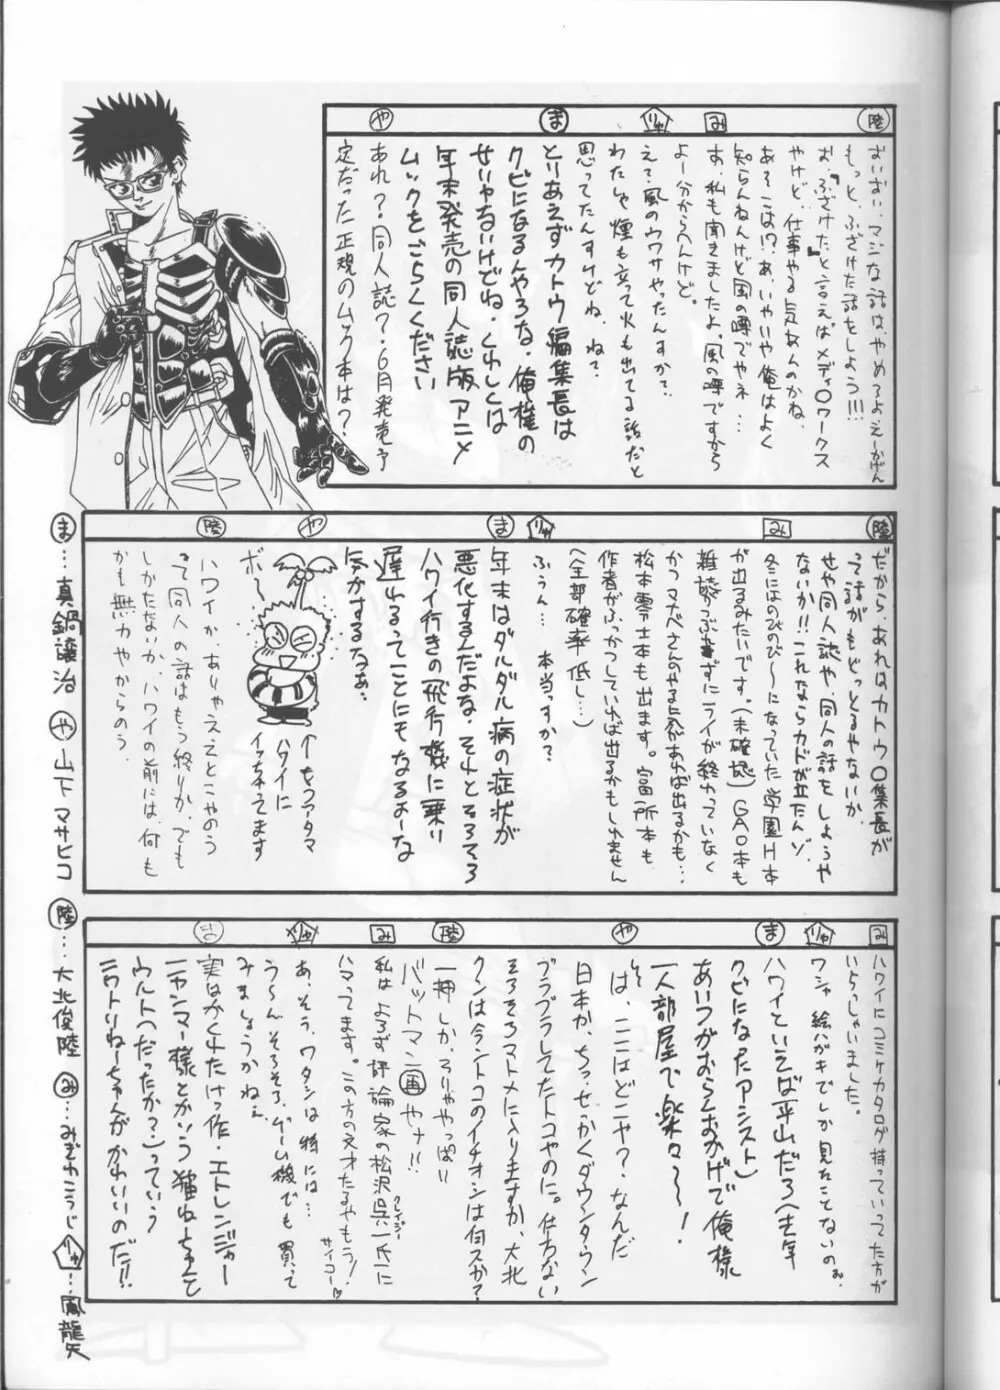 陸
おいおい、マジな話は、やめろよえーかげん
もっと、ふざけた話をしよう!!!
お、『ふざけた』と言えばメディ〇ワークス
やけど、仕事やる気あんのかね、
あそこは!?あ、いやいや俺はよく
知らんねんけど風の噂でやネ…
み
あ、私も聞きましたよ。風の噂ですから
よー分からへんけど。
りゅ
え?風のウワサやったんすか?
わたしゃ煙も立って火も出てる話だと
思ってたんすけどね、ねて
ま
とりあえずカトウ編集長は
クビになるんやろな、俺様の
せいやないけどね。くわしくは
年末発売の同人誌版アニメ
ムックをごらんください
や
あれ?同人誌?6月発売予
定だった正規のムック本は?
陸
だから、あれはカトウ〇集長が
って話がもどっとるやないか、
せや同人誌や、同人の話をしようや
ないか!!これならカドが立たんゾ、
み
冬にはのびのび〜になっていた学園H本
が出るみたいです。(未確認)GAO本も
雑誌がつぶれずにライが終わっていなく
かつマナベさんのやる気があれば出るかも…
松本零士本も出ます。富所本も
作者がふっかつしていれば出るかもしれません
(全部確率低し…)
りゅ
ふぅん… 本当っすか?
ま
年末はダルダル病の症状が
悪化するんだよな、それとそろそろ
ハワイ行きの飛行機に乗り
遅れるってことにもなるよーな
気がするなぁ…
や
ボ〜
↑もうアタマ
ハワイに
イっちゃってます
陸
ハワイか、ありゃええとこやのう
って同人の話はもう終りか、でも
しかたないか、ハワイの前には、何も
かも無力やからのう、
み
ハワイにコミケカタログ持っていってた方が
いらっしゃいました。
りゅ
ワシャ絵ハガキでしか見たことないのぉ、
ま
ハワイといえば平山だろ(去年
クビになったアシスト)
あいつがおらんおかげで俺様
一人部屋で楽々〜〜!
や
は、ここはどこヤ?なんだ
日本か、ちっ、せっかくダウンタウン
ブラブラしてたトコやのに。仕方ない
そろそろマトメに入りますか、大北
クンは今、ントコのイチオシは何スか?
陸
一押しか、そりゃやっぱり
バットマン画やナ!!
み
私は よろず評論家の松沢呉一氏に
クレイジー
ハマってます。この方の文才たるやもう!
サイコー♡
りゅ
あ、そう、ワタシは特には…
う〜ん、そろそろ、ゲーム機でも買って
みましょうかねぇ
ま
実はかくれたけっ作・エトレンジャー
ニャンマー様とかいう猫ねーちゃんて
ウルト(だったか?)っていう
ニワトリねーちゃんがかわいいのだ!!
ま…真鍋譲治 や山下マサヒコ 陸…大北俊陸 み…みぞわこうじ りゅ…風龍矢